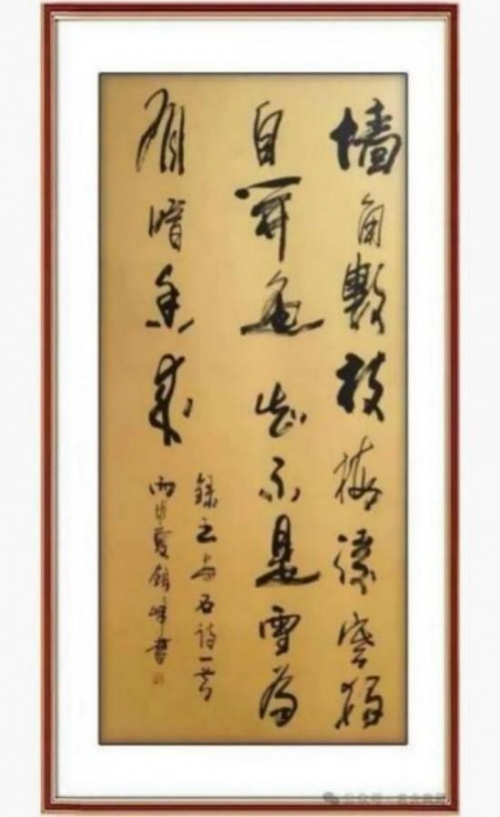 墙角數枝梅凌寒独
自开遥知不是雪为
有暗香来
録王安石诗一首
丙申夏 峰书
公众号